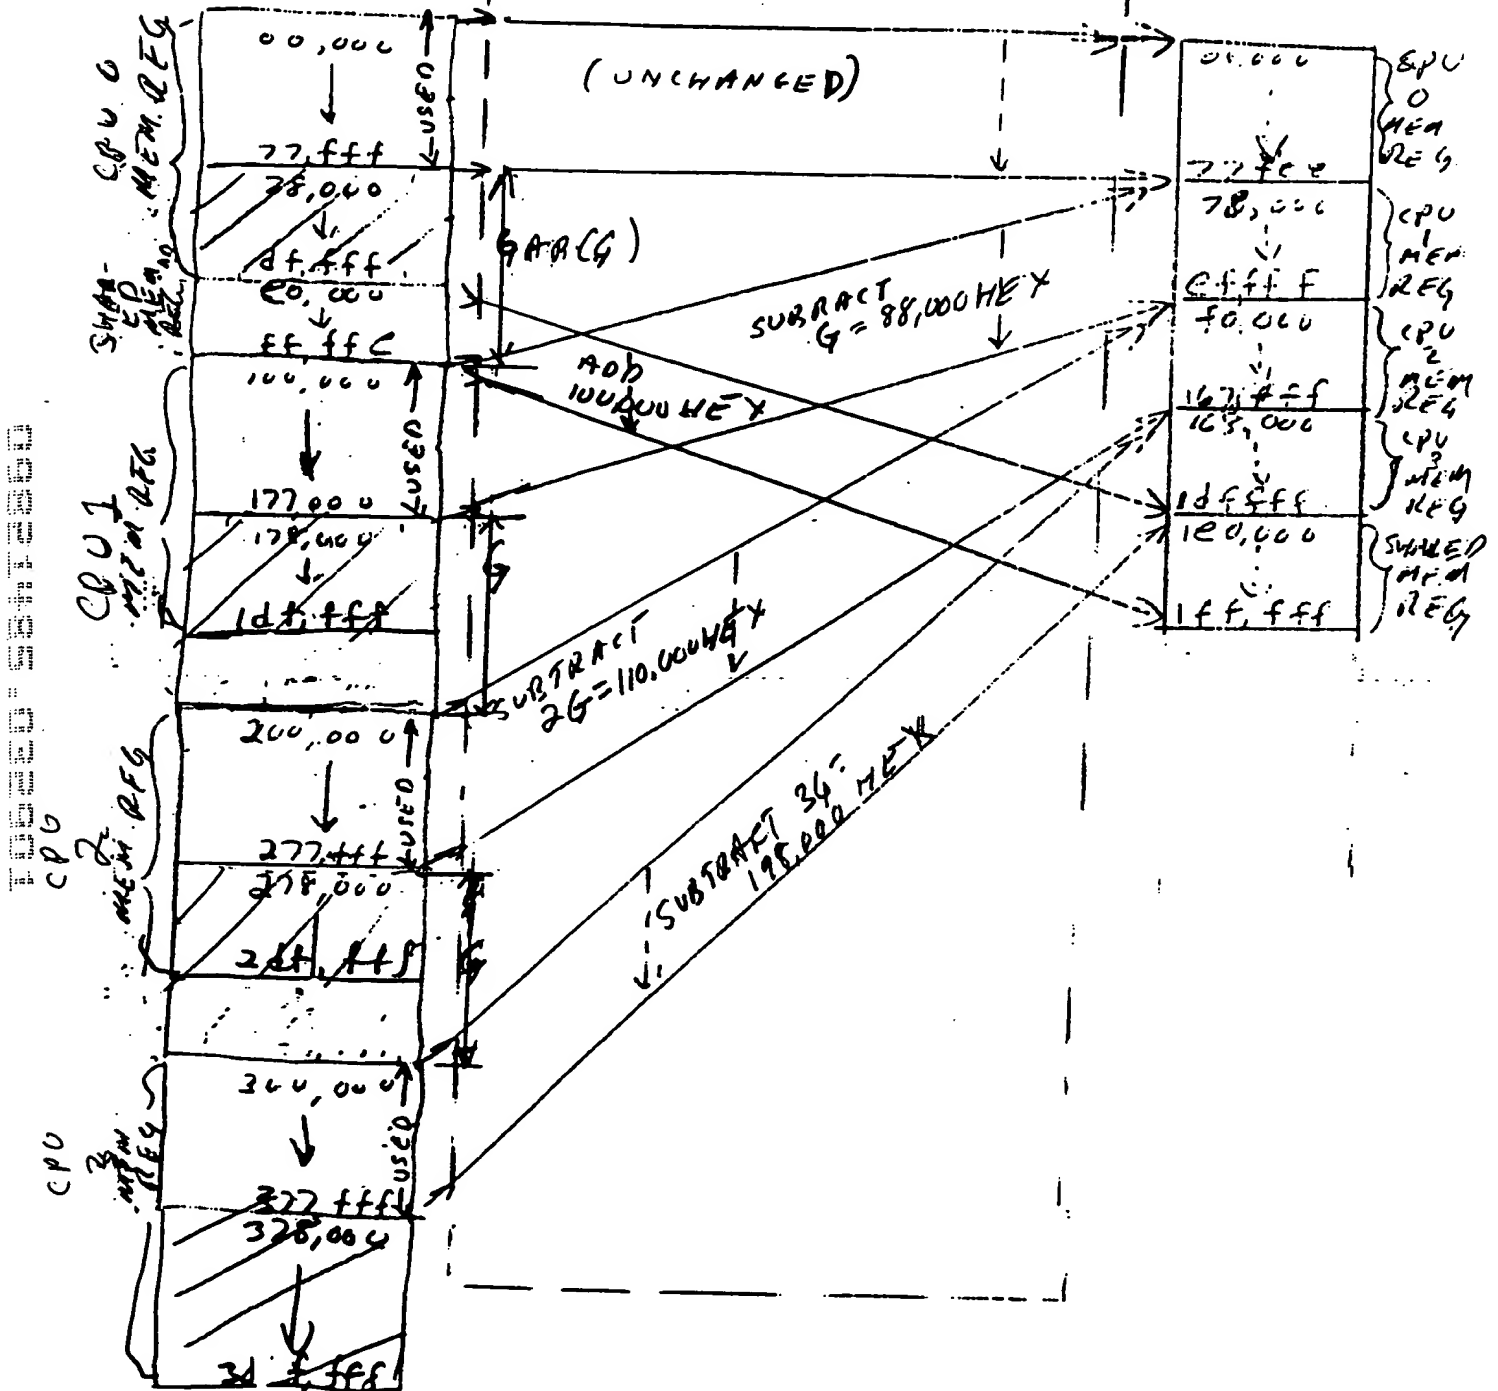 CPU 0
MEM. REG
00,000
77,fff
78,000
df,fff
USED
SHAR-
ED
MEM
REG
e0,000
ff,fff
(UNCHANGED)
GAP(G)
SUBRACT
G = 88,000 HEX
ADD
100,000 HEX
CPU 1
MEM REG
100,000
177,000
178,000
1df,fff
USED
G
SUBTRACT
2G = 110,000 HEX
CPU
2
MEM REG
200,000
277,fff
278,000
2df,fff
USED
G
SUBTRACT 3G =
198,000 HEX
CPU
3
MEM
REG
300,000
377 fff
378,000
3df,fff
USED
00,000
CPU
0
MEM
REG
78,000
CPU
1
MEM
REG
effff
f0,000
CPU
2
MEM
REG
167fff
168,000
CPU
3
MEM
REG
1dffff
1e0,000
1ff,fff
SHARED
MEM
REG